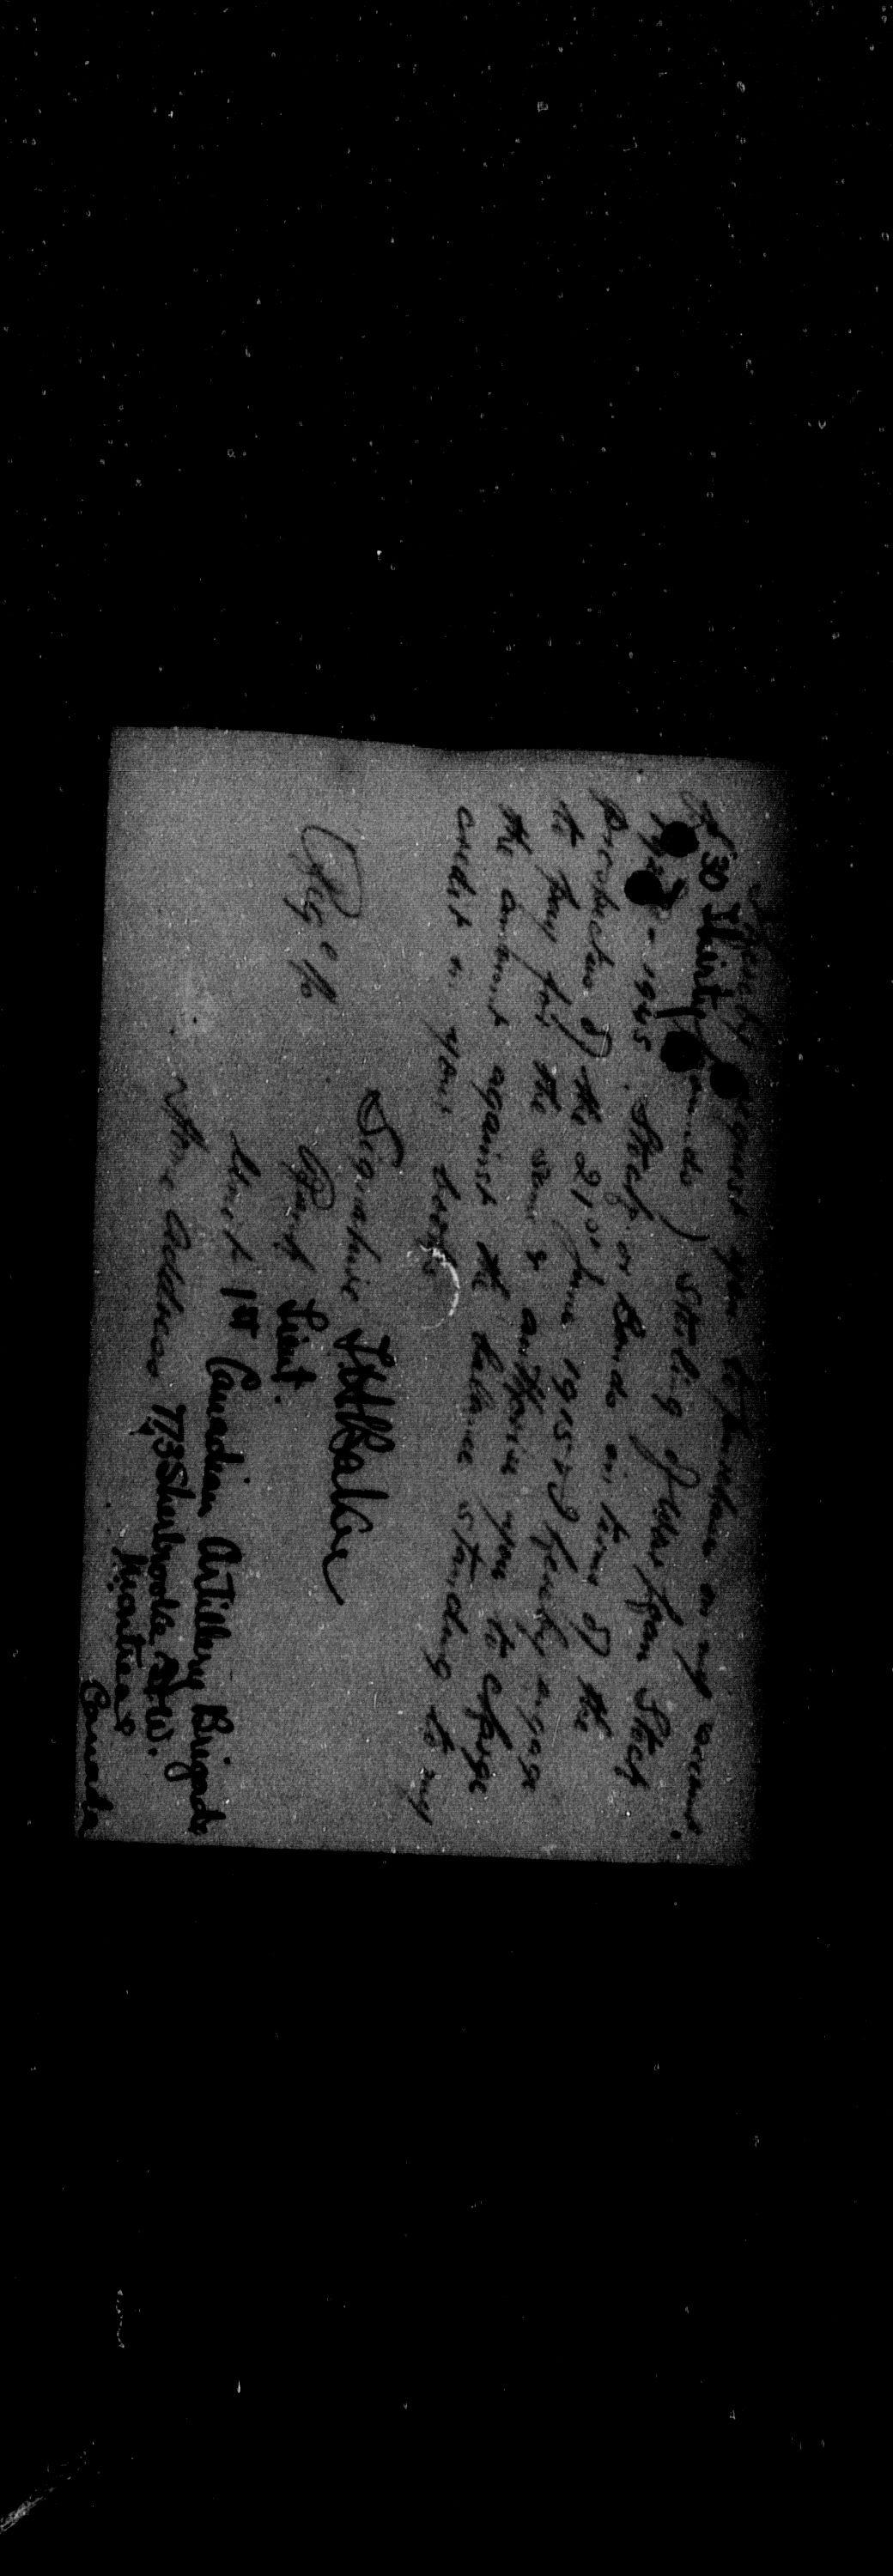 I hereby request you to purchase on my account.
£30 Thirty pounds) Sterling of War Loan Stock
1925 - 1945. Stock or Bonds in terms of the
prospectus of the 21st June 1915 & I hereby agree
to pay for the same & authorise you to charge
the amount against the balance standing to my
credit in your books
Signature
Reg. No Rank Lieut.
Unit 1st Canadian Artillery Brigade
Home Address 773 Sherbrooke St. W.
Montreal
Canada